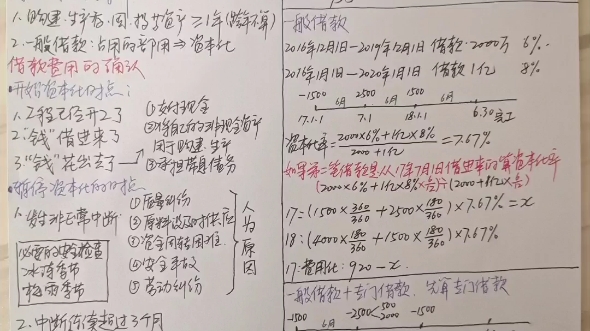 1. 购建、生产存、固、投等资产≥1年(跨年不算)
2. 一般借款：占用的部分用⇒资本化
借款费用的确认
·开始资本化时点：
1. 工程已经开工了
2. "钱"借进来了
3. "钱"花出去了→
①支付现金
②将自己的非现金资产
用于购建、生产
③承担带息债务
·暂停资本化的时点
1. 发生非正常中断
必要的安全检查
冰冻季节
梅雨季节
①质量纠纷
②原料没及时供应
③资金周转困难
④安全事故
⑤劳动纠纷
人为原因
2. 中断连续超过3个月
一般借款
2016年12月1日-2019年12月1日 借款：2000万 6%.
2016年1月1日-2020年1月1日 借款1亿 8%
-1500 2500 1500
6月 6月 6月
17.1.1 7.1 18.1.1 6.30完工
资本化率=(2000×6%+1亿×8%)/(2000+1亿)=7.67%
如果第二笔借款是从17年7月1日借进来的算资本化率
(2000×6%+1亿×8%×6/12)÷(2000+1亿×6/12)
17=(1500×360/360+2500×180/360)×7.67%=x
18:(4000×180/360+1500×180/360)×7.67%
17:费用化：920-x.
一般借款+专门借款，先算专门借款
-1500 -2500<500 2000 -1500
6月 6月 6月